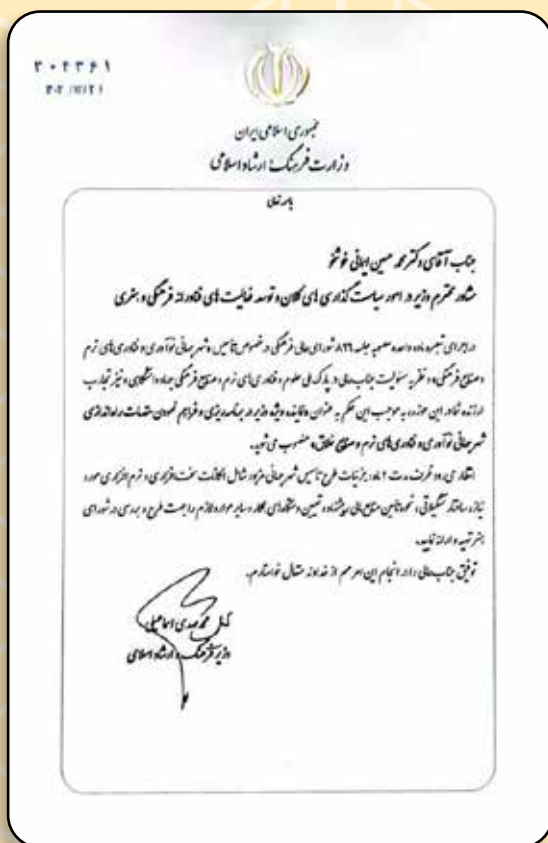 ۳۰۲۳۶۱
جمهوری اسلامی ایران
وزارت فرهنگ و ارشاد اسلامی
باسمه تعالی
جناب آقای دکتر محمد حسین ایمانی خوشخو
مشاور محترم وزیر در امور سیاست گذاری های کلان و توسعه فعالیت های فناورانه فرهنگی و هنری
در اجرای تبصره ماده واحده مصوبه جلسه ۸۲۶ شورای عالی فرهنگی در خصوص تأسیس شهر جهانی نوآوری و فناوری های نرم
و صنایع فرهنگی و نظر به مسئولیت جنابعالی در پارک ملی علوم و فناوری های نرم و صنایع فرهنگی جهاد دانشگاهی و نیز تجارب
ارزنده شما در این حوزه، به موجب این حکم به عنوان نماینده ویژه وزیر در برنامه ریزی و فراهم نمودن مقدمات راه اندازی
شهر جهانی نوآوری و فناوری های نرم و صنایع خلاق، منصوب می شوید.
انتظار می رود ظرف مدت ۲ ماه، جزئیات طرح تأسیس شهر جهانی مزبور شامل امکانات سخت افزاری و نرم افزاری مورد
نیاز، ساختار تشکیلاتی، نحوه تأمین منابع مالی، تعیین و سایر موارد لازم را جهت طرح و بررسی در شورای
هنر تهیه و ارائه نمایید.
توفیق جنابعالی را در انجام این امر مهم از خداوند متعال خواستارم.
محمد مهدی اسماعیلی
وزیر فرهنگ و ارشاد اسلامی